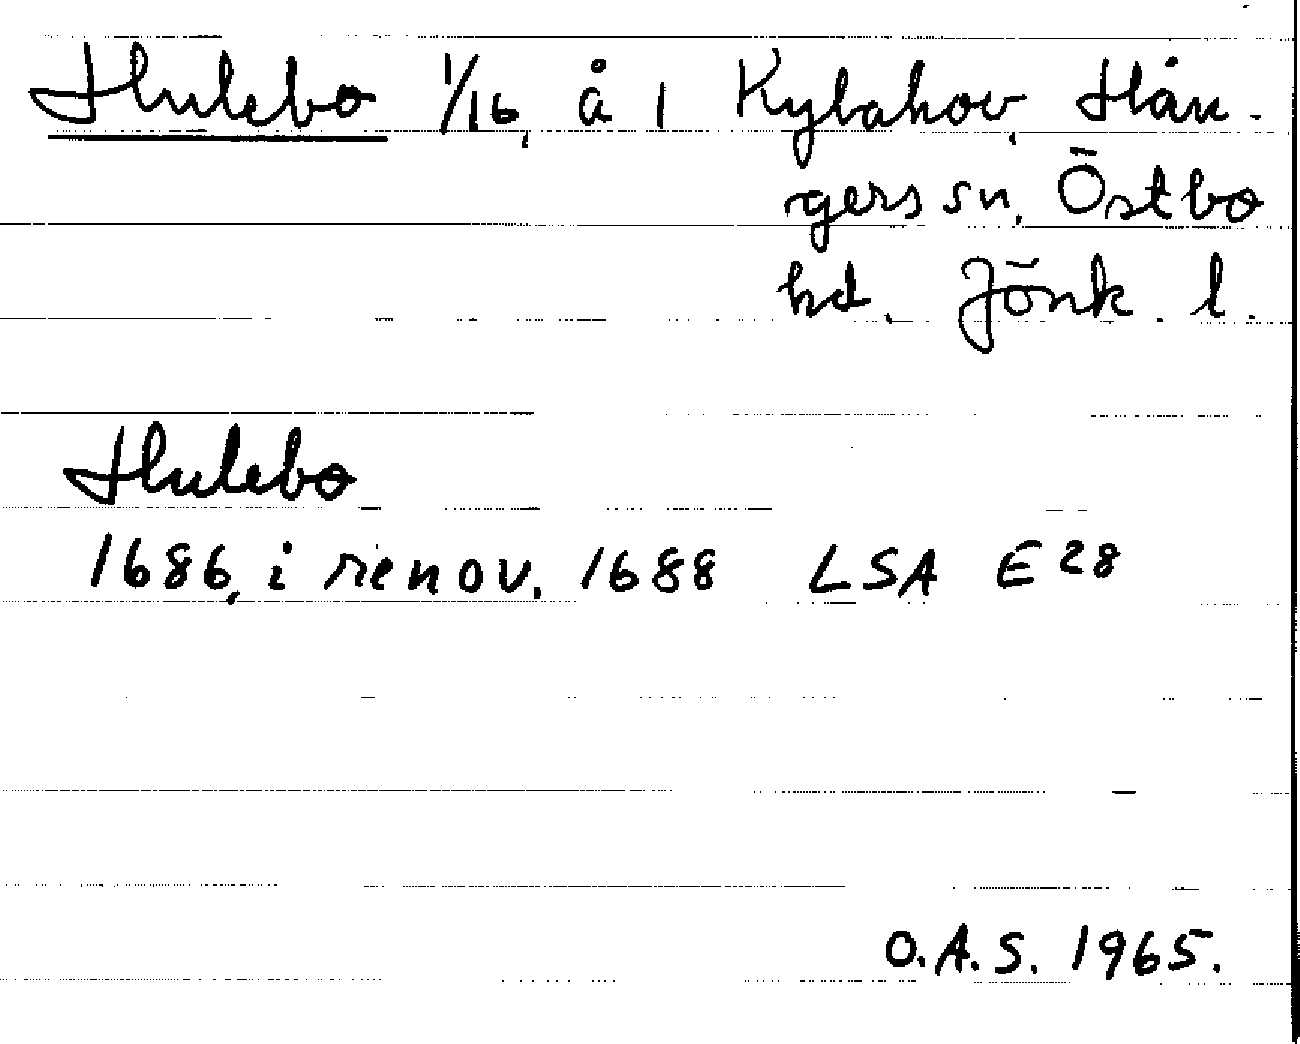 Hulebo 1/16, å 1 Kylahov, Hån-
gers sn, Östbo
hd. Jönk. l.
Hulebo
1686, i renov. 1688 LSA E 28
O.A.S. 1965.